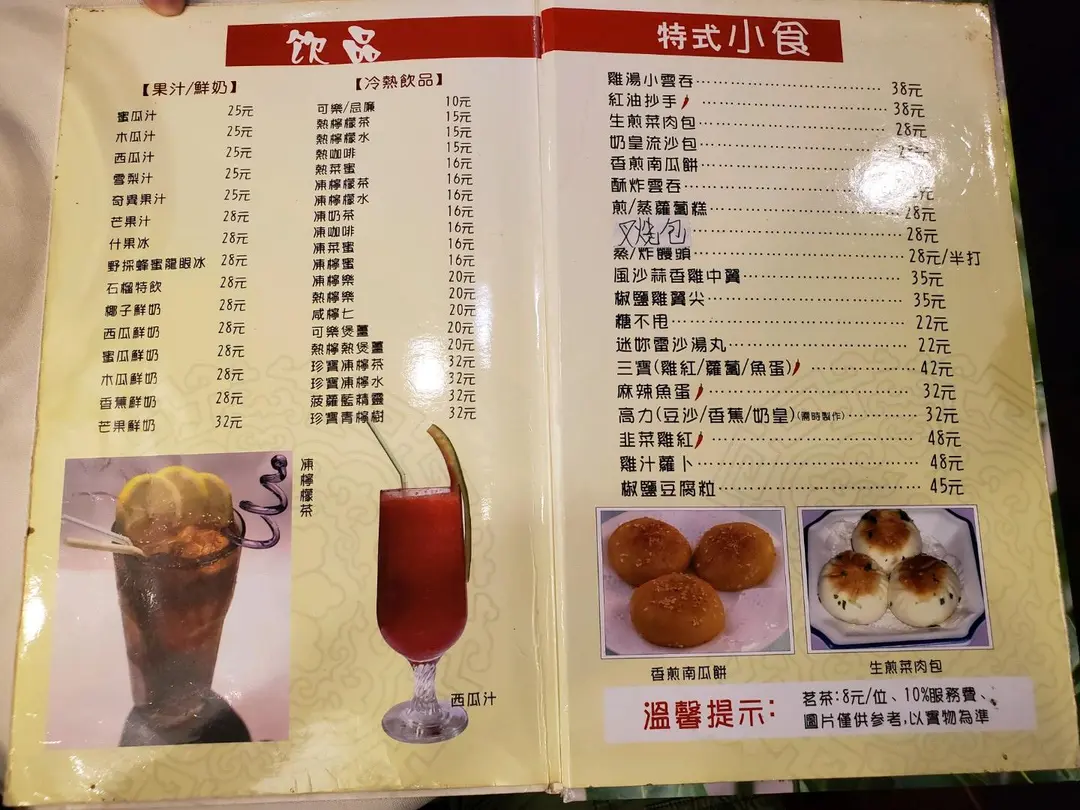 飲品
【果汁/鮮奶】
蜜瓜汁 25元
木瓜汁 25元
西瓜汁 25元
雪梨汁 25元
奇異果汁 25元
芒果汁 28元
什果冰 28元
野採蜂蜜龍眼冰 28元
石榴特飲 28元
椰子鮮奶 28元
西瓜鮮奶 28元
蜜瓜鮮奶 28元
木瓜鮮奶 28元
香蕉鮮奶 28元
芒果鮮奶 32元
【冷熱飲品】
可樂/忌廉 10元
熱檸檬茶 15元
熱檸檬水 15元
熱咖啡 15元
熱菜蜜 16元
凍檸檬茶 16元
凍檸檬水 16元
凍奶茶 16元
凍咖啡 16元
凍菜蜜 16元
凍檸蜜 16元
凍檸樂 20元
熱檸樂 20元
咸檸七 20元
可樂煲薑 20元
熱檸熱煲薑 20元
珍寶凍檸茶 32元
珍寶凍檸水 32元
菠蘿藍精靈 32元
珍寶青檸樹 32元
凍檸檬茶
西瓜汁
特式小食
雞湯小雲吞 38元
紅油抄手 38元
生煎菜肉包 28元
奶皇流沙包
香煎南瓜餅
酥炸雲吞 元
煎/蒸蘿蔔糕 28元
叉烧包 28元
蒸/炸饅頭 28元/半打
風沙蒜香雞中翼 35元
椒鹽雞翼尖 35元
糖不甩 22元
迷妳雷沙湯丸 22元
三寶(雞紅/蘿蔔/魚蛋) 42元
麻辣魚蛋 32元
高力(豆沙/香蕉/奶皇)(需時製作) 32元
韭菜雞紅 48元
雞汁蘿卜 48元
椒鹽豆腐粒 45元
香煎南瓜餅
生煎菜肉包
溫馨提示:
茗茶:8元/位、10%服務費、
圖片僅供參考,以實物為準